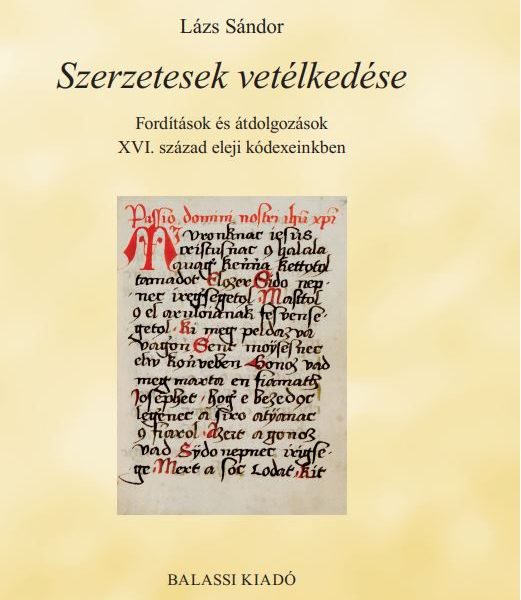 Lázs Sándor
Szerzetesek vetélkedése
Fordítások és átdolgozások
XVI. század eleji kódexeinkben
Passio domini nostri ihu xpi
M vronknac iesus
cristusnac ο halala
kettotol
tamadot Elozer Sido nep-
nec iregsegetol Masttol
ο el aruloianak fesvense-
getol ki meg peldaz va
vagon Sent moyses nec
elw konveben Gonoz vad
meg marta en fiamath
Josephet hog e bezedoc
legenec a siro atyanac
ο fiarol Azert a gonoz
vad Sydo nepnec irigse-
ge Mert a soc Lodat kit
BALASSI KIADÓ